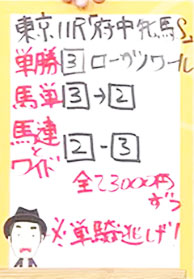 東京11R「府中牝馬S」
単勝 3 ローガンワール
馬単 3→2
馬連とワイド 2-3
全て3000円ずつ
※単騎逃げ!